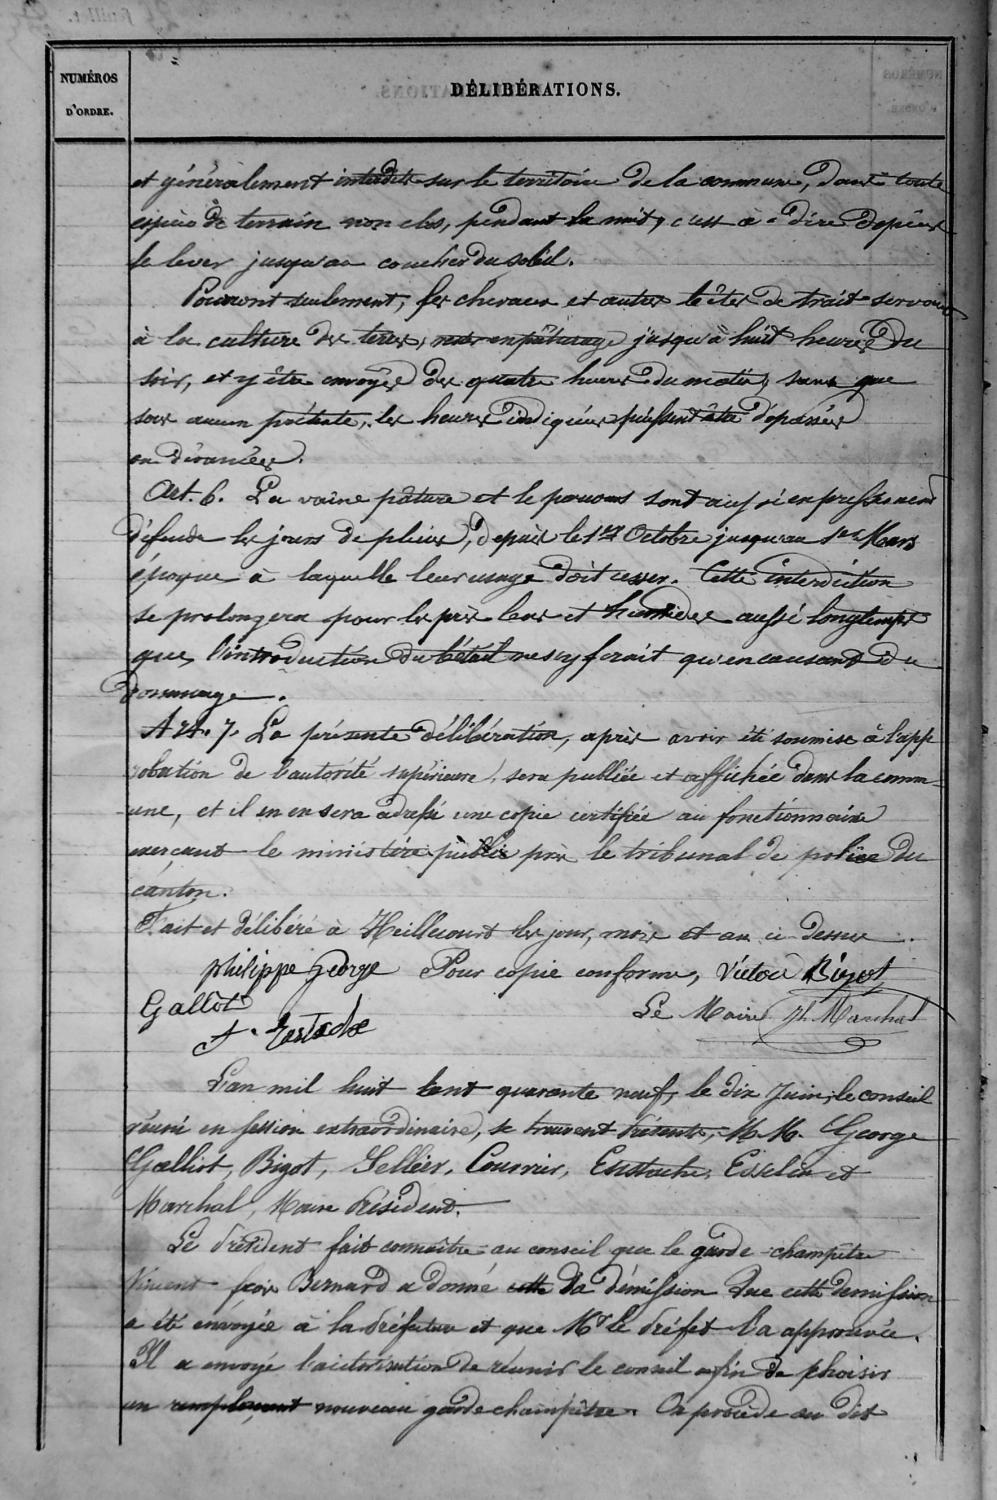 NUMÉROS
D'ORDRE.
DÉLIBÉRATIONS.
et généralement interdite sur le territoire de la commune, dans toute
espèce de terrain non clos, pendant la nuit, c'est à-dire depuis
le lever jusqu'au coucher du soleil.
Pourront seulement, les chevaux et autres bêtes de trait servant
à la culture des terres, rester en pâturage jusqu'à huit heures du
soir, et y être envoyés dès quatre heures du matin, sans que
sous aucun prétexte, les heures indiquées puissent être dépassées
ou dévancées.
Art. 6. La vaine pâture et le parcours sont aussi expressément
défendu les jours de pluies, depuis le 1er Octobre jusqu'au 1er Mars
époque à laquelle leur usage doit cesser. Cette interdiction
se prolongera pour les prés bas et humides aussi longtemps
que l'introduction du bétail ne s'y ferait qu'en causant du
dommage.
Art. 7. La présente délibération, après avoir été soumise à l'app
robation de l'autorité supérieure, sera publiée et affichée dans la comm-
une, et il en en sera adressé une copie certifiée au fonctionnaire
exerçant le ministère public près le tribunal de police du
canton.
Fait et délibéré à Heillecourt les jour, mois et an ci dessus.
philippe george Pour copie conforme, Victor Bigot
Gallot Le Maire Jh Marchal
Eustache
L'an mil huit cent quarante neuf, le dix Juin, le conseil
réuni en session extraordinaire, se trouvent présents, M.M. George
Galliot, Bigot, Sellier, Courrier, Eustache, Esselin et
Marchal, Maire Président.
Le Président fait connaître au conseil que le garde-champêtre
Vincent fçois Bernard a donné cette sa démission Que cette demission
a été envoyée à la Préfecture et que Mr le Préfet l'a approuvée.
Il a envoyé l'autorisation de réunir le conseil afin de choisir
un remplaçant nouveau garde champêtre. On procède au dit